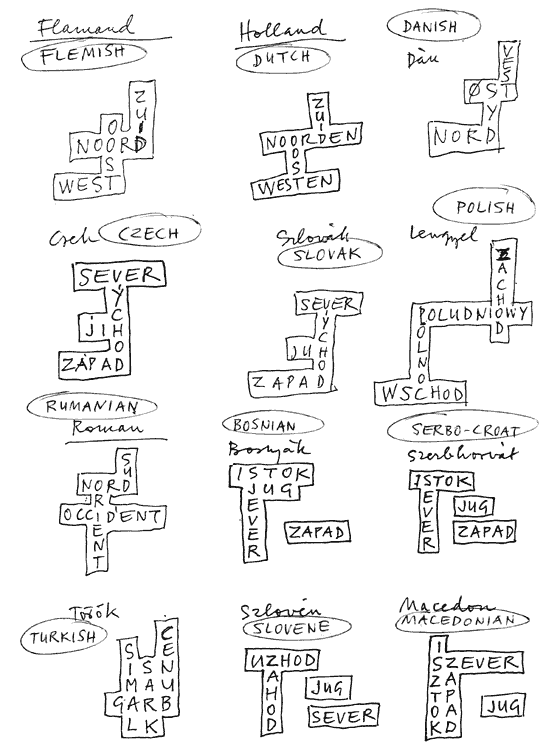 Flamand
FLEMISH
ZUID
OOST
NOORD
WEST
Holland
DUTCH
ZUID
NOORDEN
OOST
WESTEN
DANISH
Dán
VEST
ØST
SYD
NORD
Cseh
CZECH
SEVER
VÝCHOD
JIH
ZÁPAD
Szlovák
SLOVAK
SEVER
VÝCHOD
JUH
ZAPAD
POLISH
Lengyel
ZACHOD
POLUDNIOWY
POLNOC
WSCHOD
RUMANIAN
Roman
SUD
NORD
ORIENT
OCCIDENT
BOSNIAN
Bosnyák
ISTOK
JUG
SEVER
ZAPAD
SERBO-CROAT
Szerbhorvát
ISTOK
SEVER
JUG
ZAPAD
Török
TURKISH
CENUB
SIMAL
SARK
GARB
Szlovén
SLOVENE
UZHOD
ZAHOD
JUG
SEVER
Macedon
MACEDONIAN
ISZTOK
SZEVER
ZAPAD
JUG